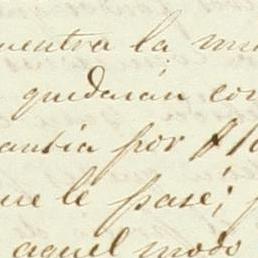 uentra la
quedarán con
antia por $10
ue le pasé;
aquel modo